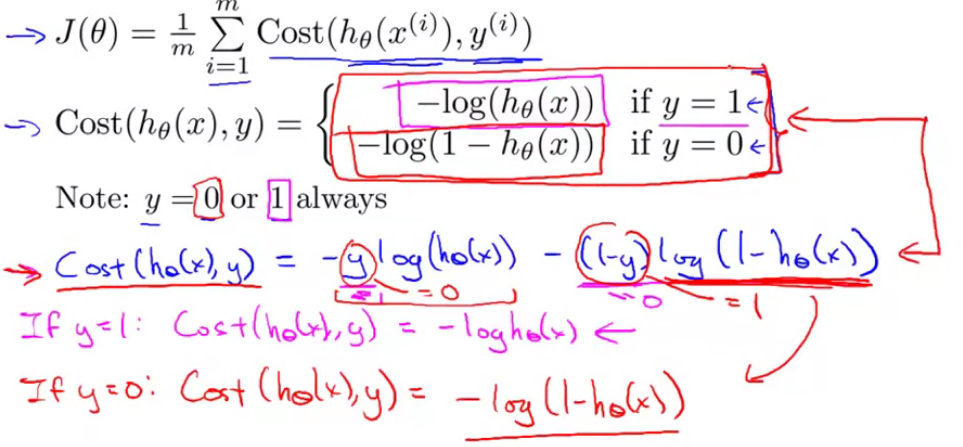 → J(θ) = 1/m m∑i=1 Cost(hθ(x⁽ⁱ⁾), y⁽ⁱ⁾)
→ Cost(hθ(x), y) = { −log(hθ(x)) if y = 1 ←
−log(1 − hθ(x)) if y = 0 ←
Note: y = 0 or 1 always
→ Cost(hθ(x), y) = −y log(hθ(x)) − (1−y) log(1−hθ(x)) ←
=1 =0 =0 =1
If y=1: Cost(hθ(x), y) = −log hθ(x) ←
If y=0: Cost(hθ(x), y) = −log(1−hθ(x))